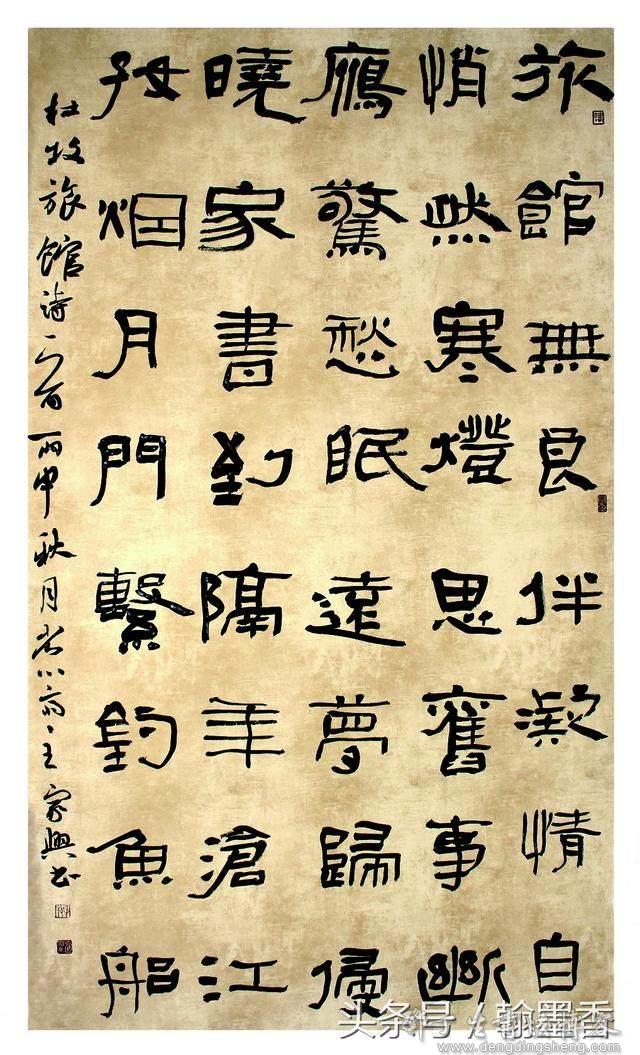 旅館無良伴凝情自
悄然寒燈思舊事斷
鴈驚愁眠遠夢歸侵
曉家書到隔年滄江
好烟月門繫釣魚船
杜牧旅館詩一首丙申秋月主家興书
头条号 / 翰墨香
www.dengdingsheng.com